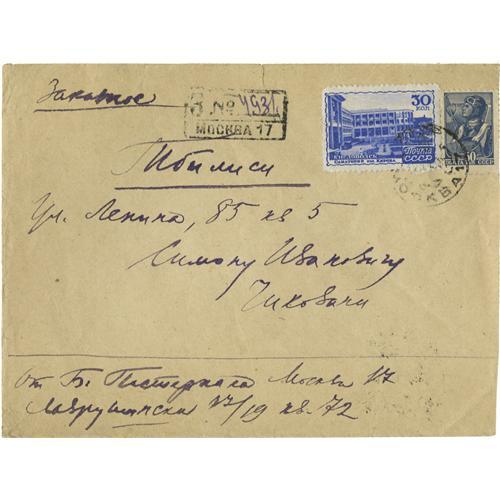 Заказное
З № 4931
МОСКВА 17
30 КОП
ПОЧТА
СССР
КИСЛОВОДСК
30
Тбилиси
ул. Ленина, 85 кв 5
Симону Ивановичу
Чиковани
От Б. Пастернака Москва 17
Лаврушинск 17/19 кв. 72